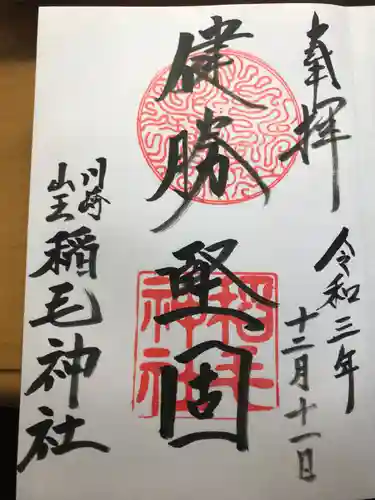 奉拝
令和三年
十二月十一日
健勝堅固
稲毛
神社
川崎
山王
稲毛神社